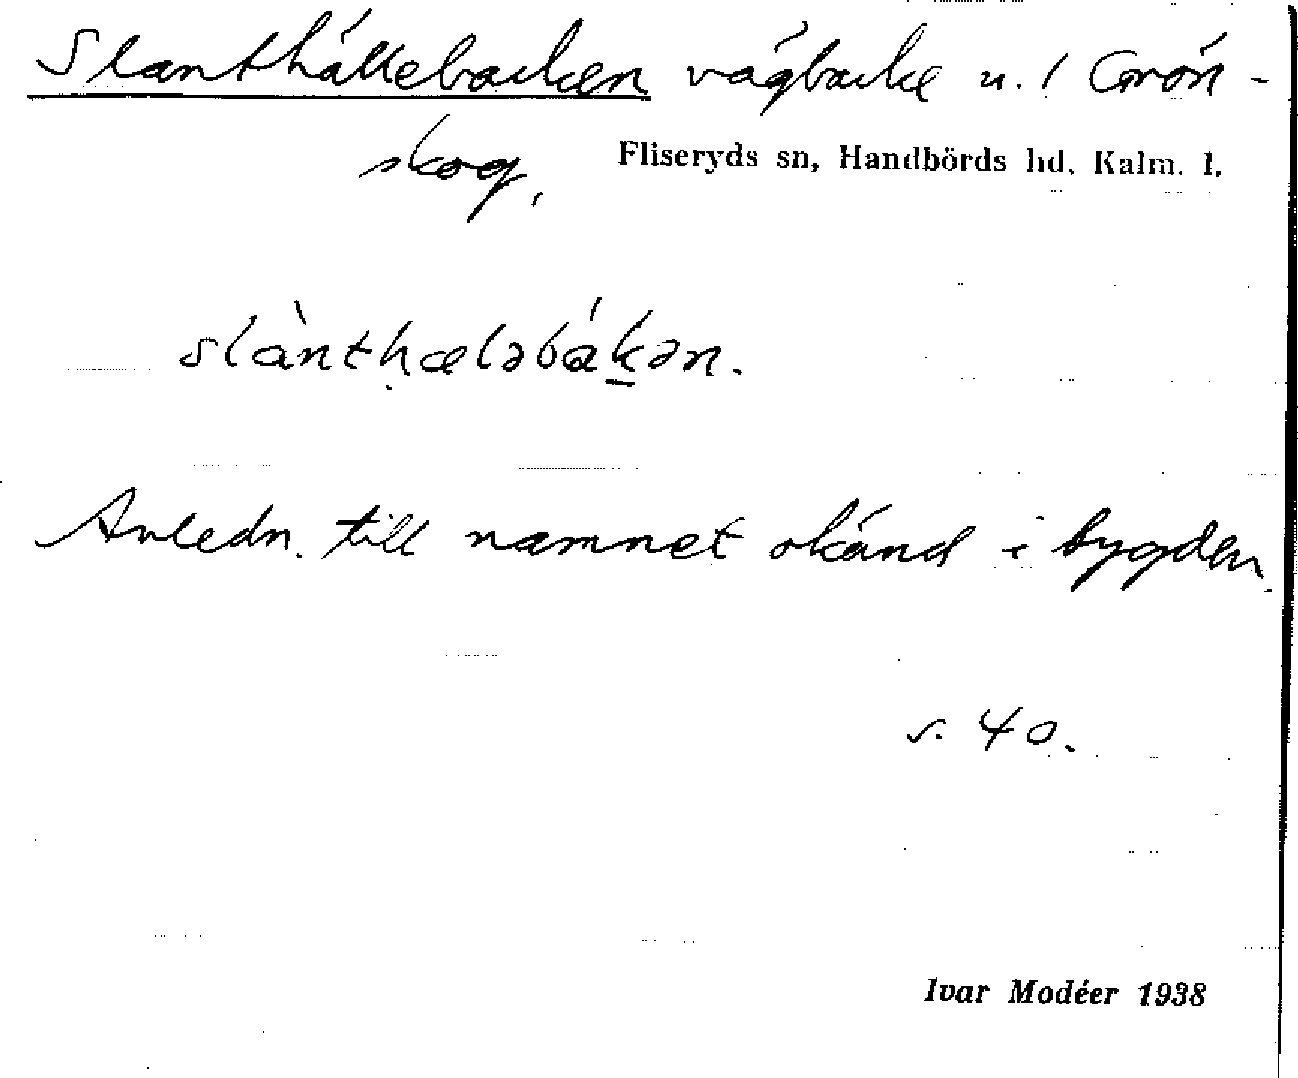 Slanthällebacken vägbacke u. / Grön-
skog,
Fliseryds sn, Handbörds hd. Kalm. l.
slànthæləbákən.
Anledn. till namnet okänd i bygden.
s. 40.
Ivar Modéer 1938